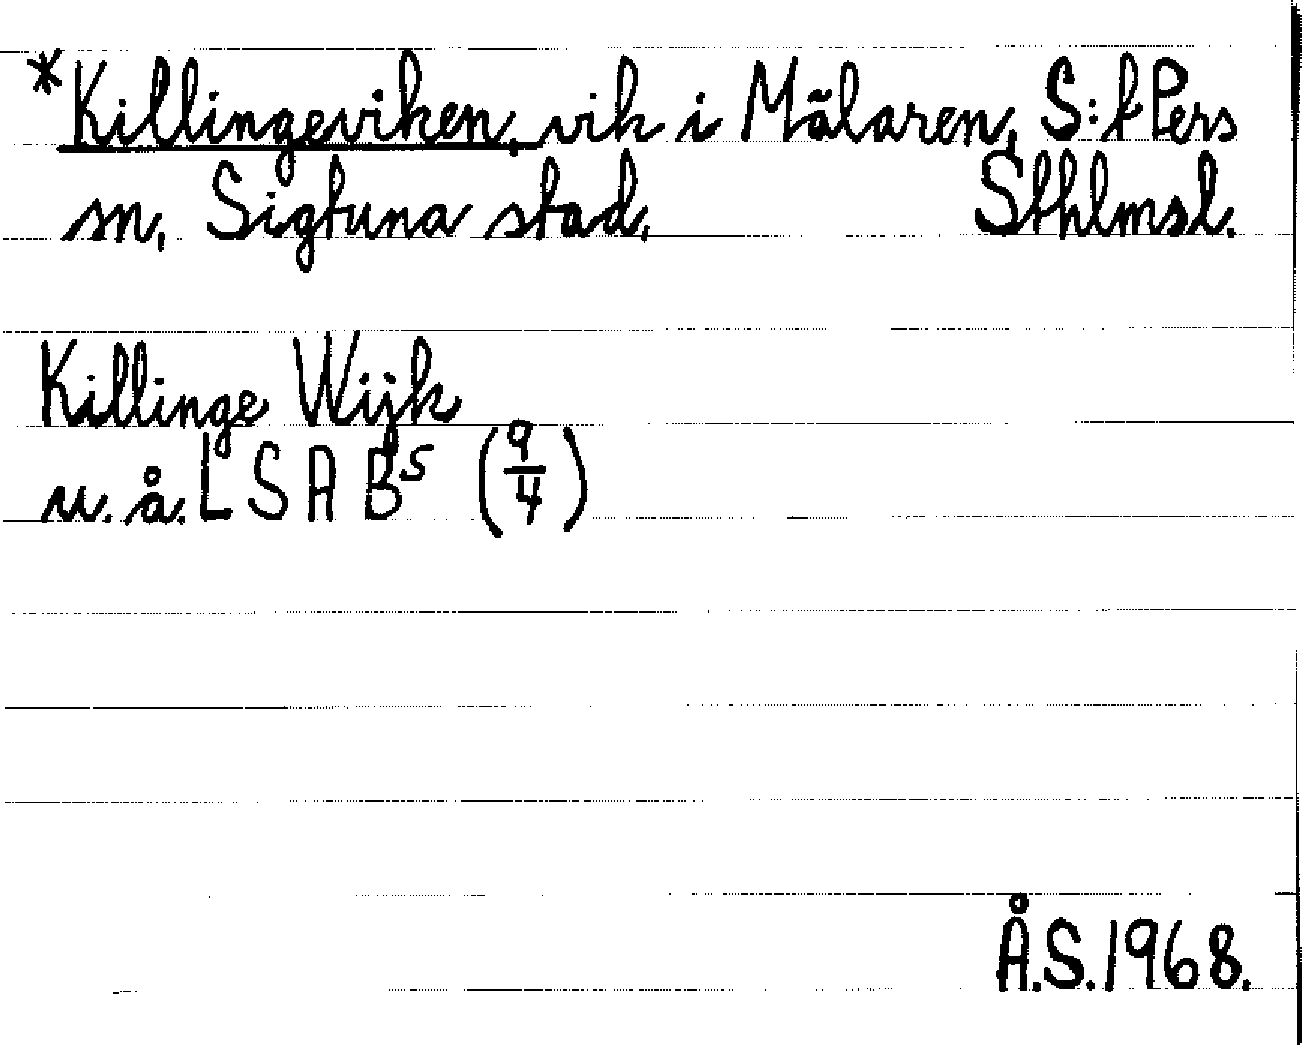 *Killingeviken, vik i Mälaren, S:t Pers
sn, Sigtuna stad, Sthlmsl.
Killinge Wijk
u. å. LSA B⁵ (9/4)
Å.S. 1968.